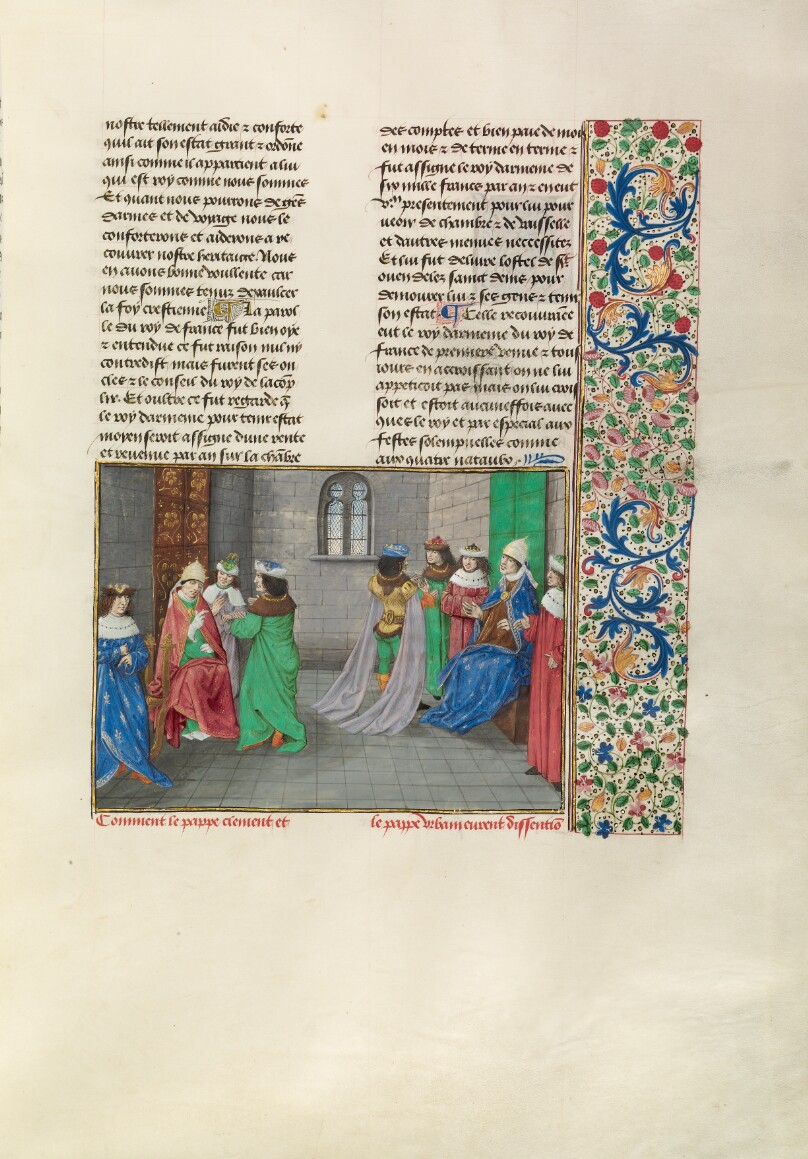 nostre tellement aidie ⁊ conforte
quil ait son estat grant ⁊ ordõne
ainsi comme il appartient a lui
qui est roy comme nous sommes
Et quant nous pourons de gẽs
darmes et de voyage nous le
conforterons et aiderons a re
couurer nostre heritaige. Nous
en auons bonne voullente car
nous sommes tenuz dexaulcer
la foy crestienne ¶ La parol
le du roy de france fut bien oye
⁊ entendue ce fut raison nul ny
contredist mais furent ses on
cles ⁊ le conseil du roy de lacõp
lir. Et oultre ce fut regarde q̃
le roy darmenie pour tenir estat
moyen seroit assigne dune rente
et reuenue par an sur la chãbre
des comptes et bien paie de mois
en mois ⁊ de terme en terme ⁊
fut assigne le roy darmenie de
six mille francs par an ⁊ en eut
presentement pour lui pour
ueoir de chambre ⁊ de vaisselle
et dautres menues neccessitez
Et lui fut deliure lostel de sĩt
ouen delez saint denis pour
demourer lui ⁊ ses gens ⁊ tenir
son estat ¶ Celle recouuriee
eut le roy darmenie du roy de
france de premiere venue ⁊ tous
iours en accroissant on ne lui
appeticoit pas mais on lui crois
soit et estoit aucuneffois auec
ques le roy et par especial aux
festes solempnelles comme
aux quatre nataulx.
Comment le pappe clement et
le pappe vrbain eurent dissentiõ